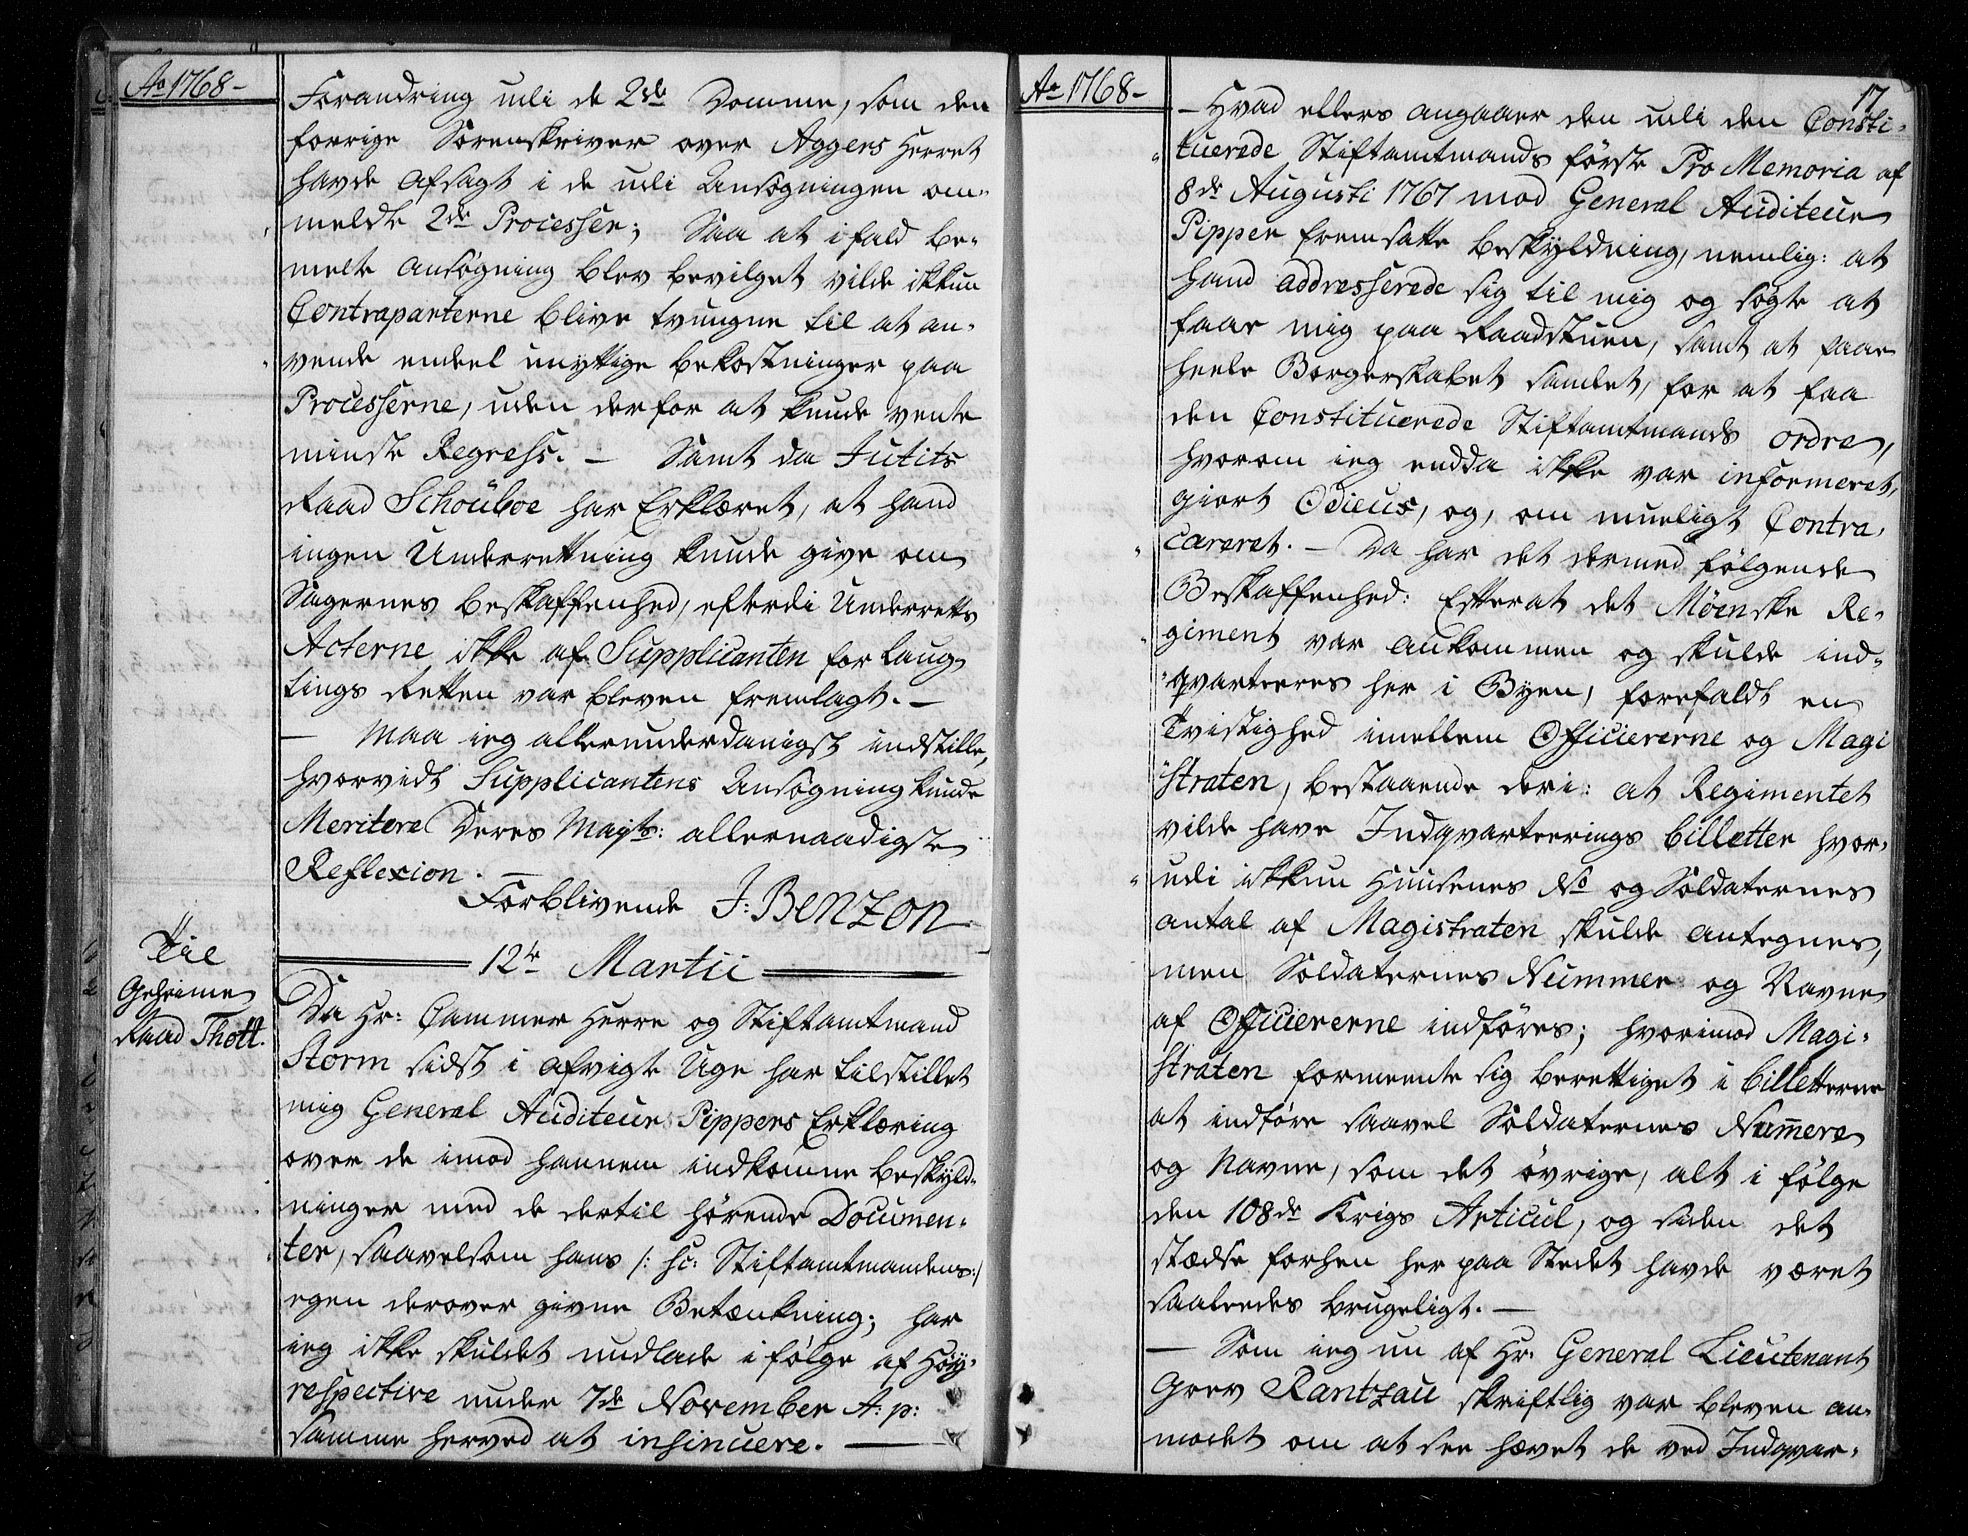 Ao 1768 –
Forandring udi de 2de Domme, som den
forrige Sorenskriver over Aggers Herret
havde afsagt i de udi Ansøgningen om-
meldte 2de Processer; Saa at ifald be-
melte Ansøgning blev bevilget vilde ikkun
Contraparterne blive tvungne til at an-
vende endeel unyttige bekostninger paa
Processerne, uden derfor at kunde vente
mindste Regress. – Samt da Jutits
Raad Schouboe har Erklæret, at hand
ingen Underrettning kunde give om
Sagernes beskaffenhed, efterdi Underretts
Acterne ikke af Supplicanten for Laug-
tings Retten var bleven fremlagt. –
– Maa ieg allerunderdanigst indstille,
hvorvidt Supplicantens Ansøgning kunde
Meritere Deres Mayts: allernaadigste
Reflexion. –
Forblivende J: Benzon
12te Martii
Til
Geheime
Raad Thott.
Da Hr: Cammer Herre og Stiftamtmand
Storm sidst i afvigte Uge har tilstillet
mig General Auditeur Pippers Erklæring
over de imod hannem indkomne beskyld-
ninger med de dertil hørende Documen-
ter, saavelsom hans /: hc: Stiftamtmandens :/
egen derover givne Betænkning; har
ieg ikke skuldet undlade i følge af Høy-
respective under 7de November A: p:
samme herved at insinuere. –
Ao 1768 –
17
– Hvad ellers angaaer den udi den Consti-
tuerede Stiftamtmands første Pro Memoria af
8de Augusti 1767 mod General Auditeur
Pipper fremsatte beskyldning, nemlig: at
hand addresserede sig til mig og søgte at
faae mig paa Raadstuen, samt at faae
heele Borgerskabet samlet, for at faa
den Constituerede Stiftamtmands ordre,
hvorom ieg endda ikke var informeret,
giort Odieus, og, om mueligt Contra-
careret. – Da har det dermed følgende
Beskaffenhed: Efterat det Møenske Re-
giment var ankommen og skulde ind-
qvarteeres her i Byen, forefaldt en
Tvistighed imellem Officiererne og Magi
straten, bestaaende deri: at Regimentet
vilde have Indqvarteerings billetter hvor-
udi ikkun Huusenes No og Soldaternes
antal af Magistraten skulde antegnes,
men Soldaternes Nummer og Navne
af Officiererne indføres; hvorimod Magi-
straten formeente sig berettiget i billetterne
at indføre saavel Soldaternes Num̄ere
og Navne, som det øvrige, alt i følge
den 108de Krigs Articul, og siden det
stædse forhen her paa Stedet havde været
saaledes brugeligt. –
– Som ieg nu af Hr: General Lieutenant
Grev Rantzau skriftlig var bleven an-
modet om at see hævet de ved Indqvar-